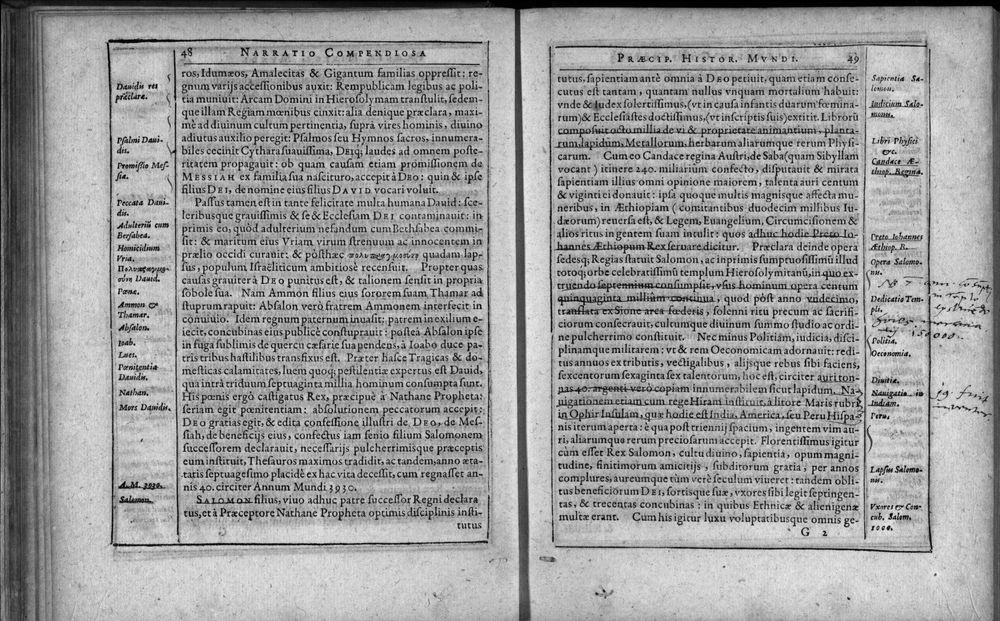 48 NARRATIO COMPENDIOSA
ros, Idumæos, Amalecitas & Gigantum familias oppressit: re-
gnum varijs accessionibus auxit: Rempublicam legibus ac poli-
tia muniuit: Arcam Domini in Hierosolymam transtulit, sedem-
que illam Regiam mœnibus cinxit: alia denique præclara, maxi-
mè ad diuinum cultum pertinentia, suprà vires hominis, diuino
adiutus auxilio peregit: Psalmos seu Hymnos sacros, innumera-
biles cecinit Cythara suauissima, DEIq; laudes ad omnem poste-
ritatem propagauit: ob quam causam etiam promissionem de
MESSIAH ex familia sua nascituro, accepit à DEO: quin & ipse
filius DEI, de nomine eius filius DAVID vocari voluit.
Passus tamen est in tante felicitate multa humana Dauid: sce-
leribusque grauissimis & se & Ecclesiam DEI contaminauit: in
primis eo, quòd adulterium nefandum cum Bethsabea commi-
sit: & maritum eius Vriam virum strenuum ac innocentem in
prælio occidi curauit: & pòsthæc πολυπραγμοσύνῃ quadam lap-
sus, populum Israëliticum ambitiosè recensuit. Propter quas
causas grauiter à DEO punitus est, & talionem sensit in propria
sobole sua. Nam Ammon filius eius sororem suam Thamar ad
stuprum rapuit: Absalon verò fratrem Ammonem interfecit in
conuiuio. Idem regnum paternum inuasit; patrem in exilium e-
iecit, concubinas eius publicè constuprauit: posteà Absalon ipse
in fuga sublimis de quercu cæsarie sua pendens, à Ioabo duce pa-
tris tribus hastilibus transfixus est. Præter hasce Tragicas & do-
mesticas calamitates, luem quoq; pestilentiæ expertus est Dauid,
qua intrà triduum septuaginta millia hominum consumpta sunt.
His pœnis ergò castigatus Rex, præcipuè à Nathane Propheta:
seriam egit pœnitentiam: absolutionem peccatorum accepit:
DEO gratias egit, & edita confessione illustri de DEO, de Mes-
siah, de beneficijs eius, confectus iam senio filium Salomonem
successorem declarauit, necessarijs pulcherrimisque præceptis
eum instituit, Thesauros maximos tradidit, ac tandem, anno æta-
tatis septuagesimo placidè ex hac vita decessit, cum regnasset an-
nis 40. circiter Annum Mundi 3930.
SALOMON filius, viuo adhuc patre successor Regni declara
tus, et à Præceptore Nathane Propheta optimis disciplinis insti-
tutus
Dauidis res
præclaræ.
Psalmi Daui-
dis.
Promissio Mes-
siæ.
Peccata Daui-
dis.
Adulteriũ cum
Bersabea.
Homicidium
Vriæ.
Πολυπραγμο-
σύνη Dauid.
Pœnæ.
Ammon &
Thamar.
Absalon.
Ioab.
Lues.
Pœnitentia
Dauidis.
Nathan.
Mors Dauidis.
A. M. 3930.
Salomon.
PRÆCIP. HISTOR. MVNDI. 49
tutus, sapientiam antè omnia à DEO petiuit, quam etiam conse-
cutus est tantam, quantam nullus vnquam mortalium habuit:
vnde & Iudex solertissimus, (vt in causa infantis duarum fœmina-
rum) & Ecclesiastes doctissimus, (vt inscriptis suis) extitit. Librorũ
composuit octo millia de vi & proprietate animantium, planta-
rum, lapidum, Metallorum, herbarum aliarumque rerum Physi-
carum. Cum eo Candace regina Austri, de Saba (quam Sibyllam
vocant) itinere 240. miliarium confecto, disputauit & mirata
sapientiam illius omni opinione maiorem, talenta auri centum
& viginti ei donauit: ipsa quoque multis magnisque affecta mu-
neribus, in Æthiopiam (comitantibus duodecim millibus Iu-
dæorum) reuersa est, & Legem, Euangelium, Circumcisionem &
alios ritus in gentem suam intulit: quos adhuc hodie Preto Io-
hannes Æthiopum Rex seruare dicitur. Præclara deinde opera
sedesq; Regias statuit Salomon, ac inprimis sumptuosissimũ illud
totoq; orbe celebratissimũ templum Hierosolymitanũ, in quo ex-
truendo septennium consumpsit, vsus hominum opera centum
quinquaginta millium continua, quod pòst anno vndecimo,
translata ex Sione arca fœderis, solenni ritu precum ac sacrifi-
ciorum consecrauit, cultumque diuinum summo studio ac ordi-
ne pulcherrimo constituit. Nec minus Politiam, iudicia, disci-
plinamque militarem: vt & rem Oeconomicam adornauit: redi-
tus annuos ex tributis, vectigalibus, alijsque rebus sibi faciens,
sexcentorum sexaginta sex talentorum, hoc est, circiter auri ton-
nas 40. argenti verò copiam innumerabilem sicut lapidum. Na-
uigationem etiam cum rege Hiram instituit, à litore Maris rubri
in Ophir Insulam, quæ hodie est India, America, seu Peru Hispa-
nis iterum aperta: è qua pòst triennij spacium, ingentem vim au-
ri, aliarumque rerum preciosarum accepit. Florentissimus igitur
cùm esset Rex Salomon, cultu diuino, sapientia, opum magni-
tudine, finitimorum amicitijs, subditorum gratia, per annos
complures, aureumque tùm verè seculum viueret: tandem obli-
tus beneficiorum DEI, fortisque suæ, vxores sibi legit septingen-
tas, & trecentas concubinas: in quibus Ethnicæ & alienigenæ
multæ erant. Cum his igitur luxu voluptatibusque omnis ge-
G 2
Sapientia Sa-
lomon.
Iudicium Salo-
monis.
Libri Physici
&c.
Candace Æ-
thiop. Regina.
Preto Iohannes
Æthiop. R.
Opera Salomo-
nis.
Dedicatio Tem-
pli.
150000.
Politia.
Oeconomia.
Diuitiæ.
Nauigatio in
Indiam.
Peru.
Lapsus Salomo-
nis.
Vxores & Con-
cub. Salom.
1000.